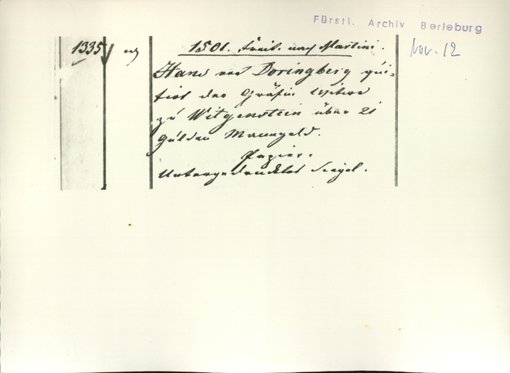 Fürstl. Archiv Berleburg
Nov. 12
1335
1501. Freit. nach Martini.
Hans von Doringberg qui-
tirt der Gräfin Witwe
zu Witgenstein über 21
Gulden Manngeld.
Papier.
Untergedrucktes Siegel.